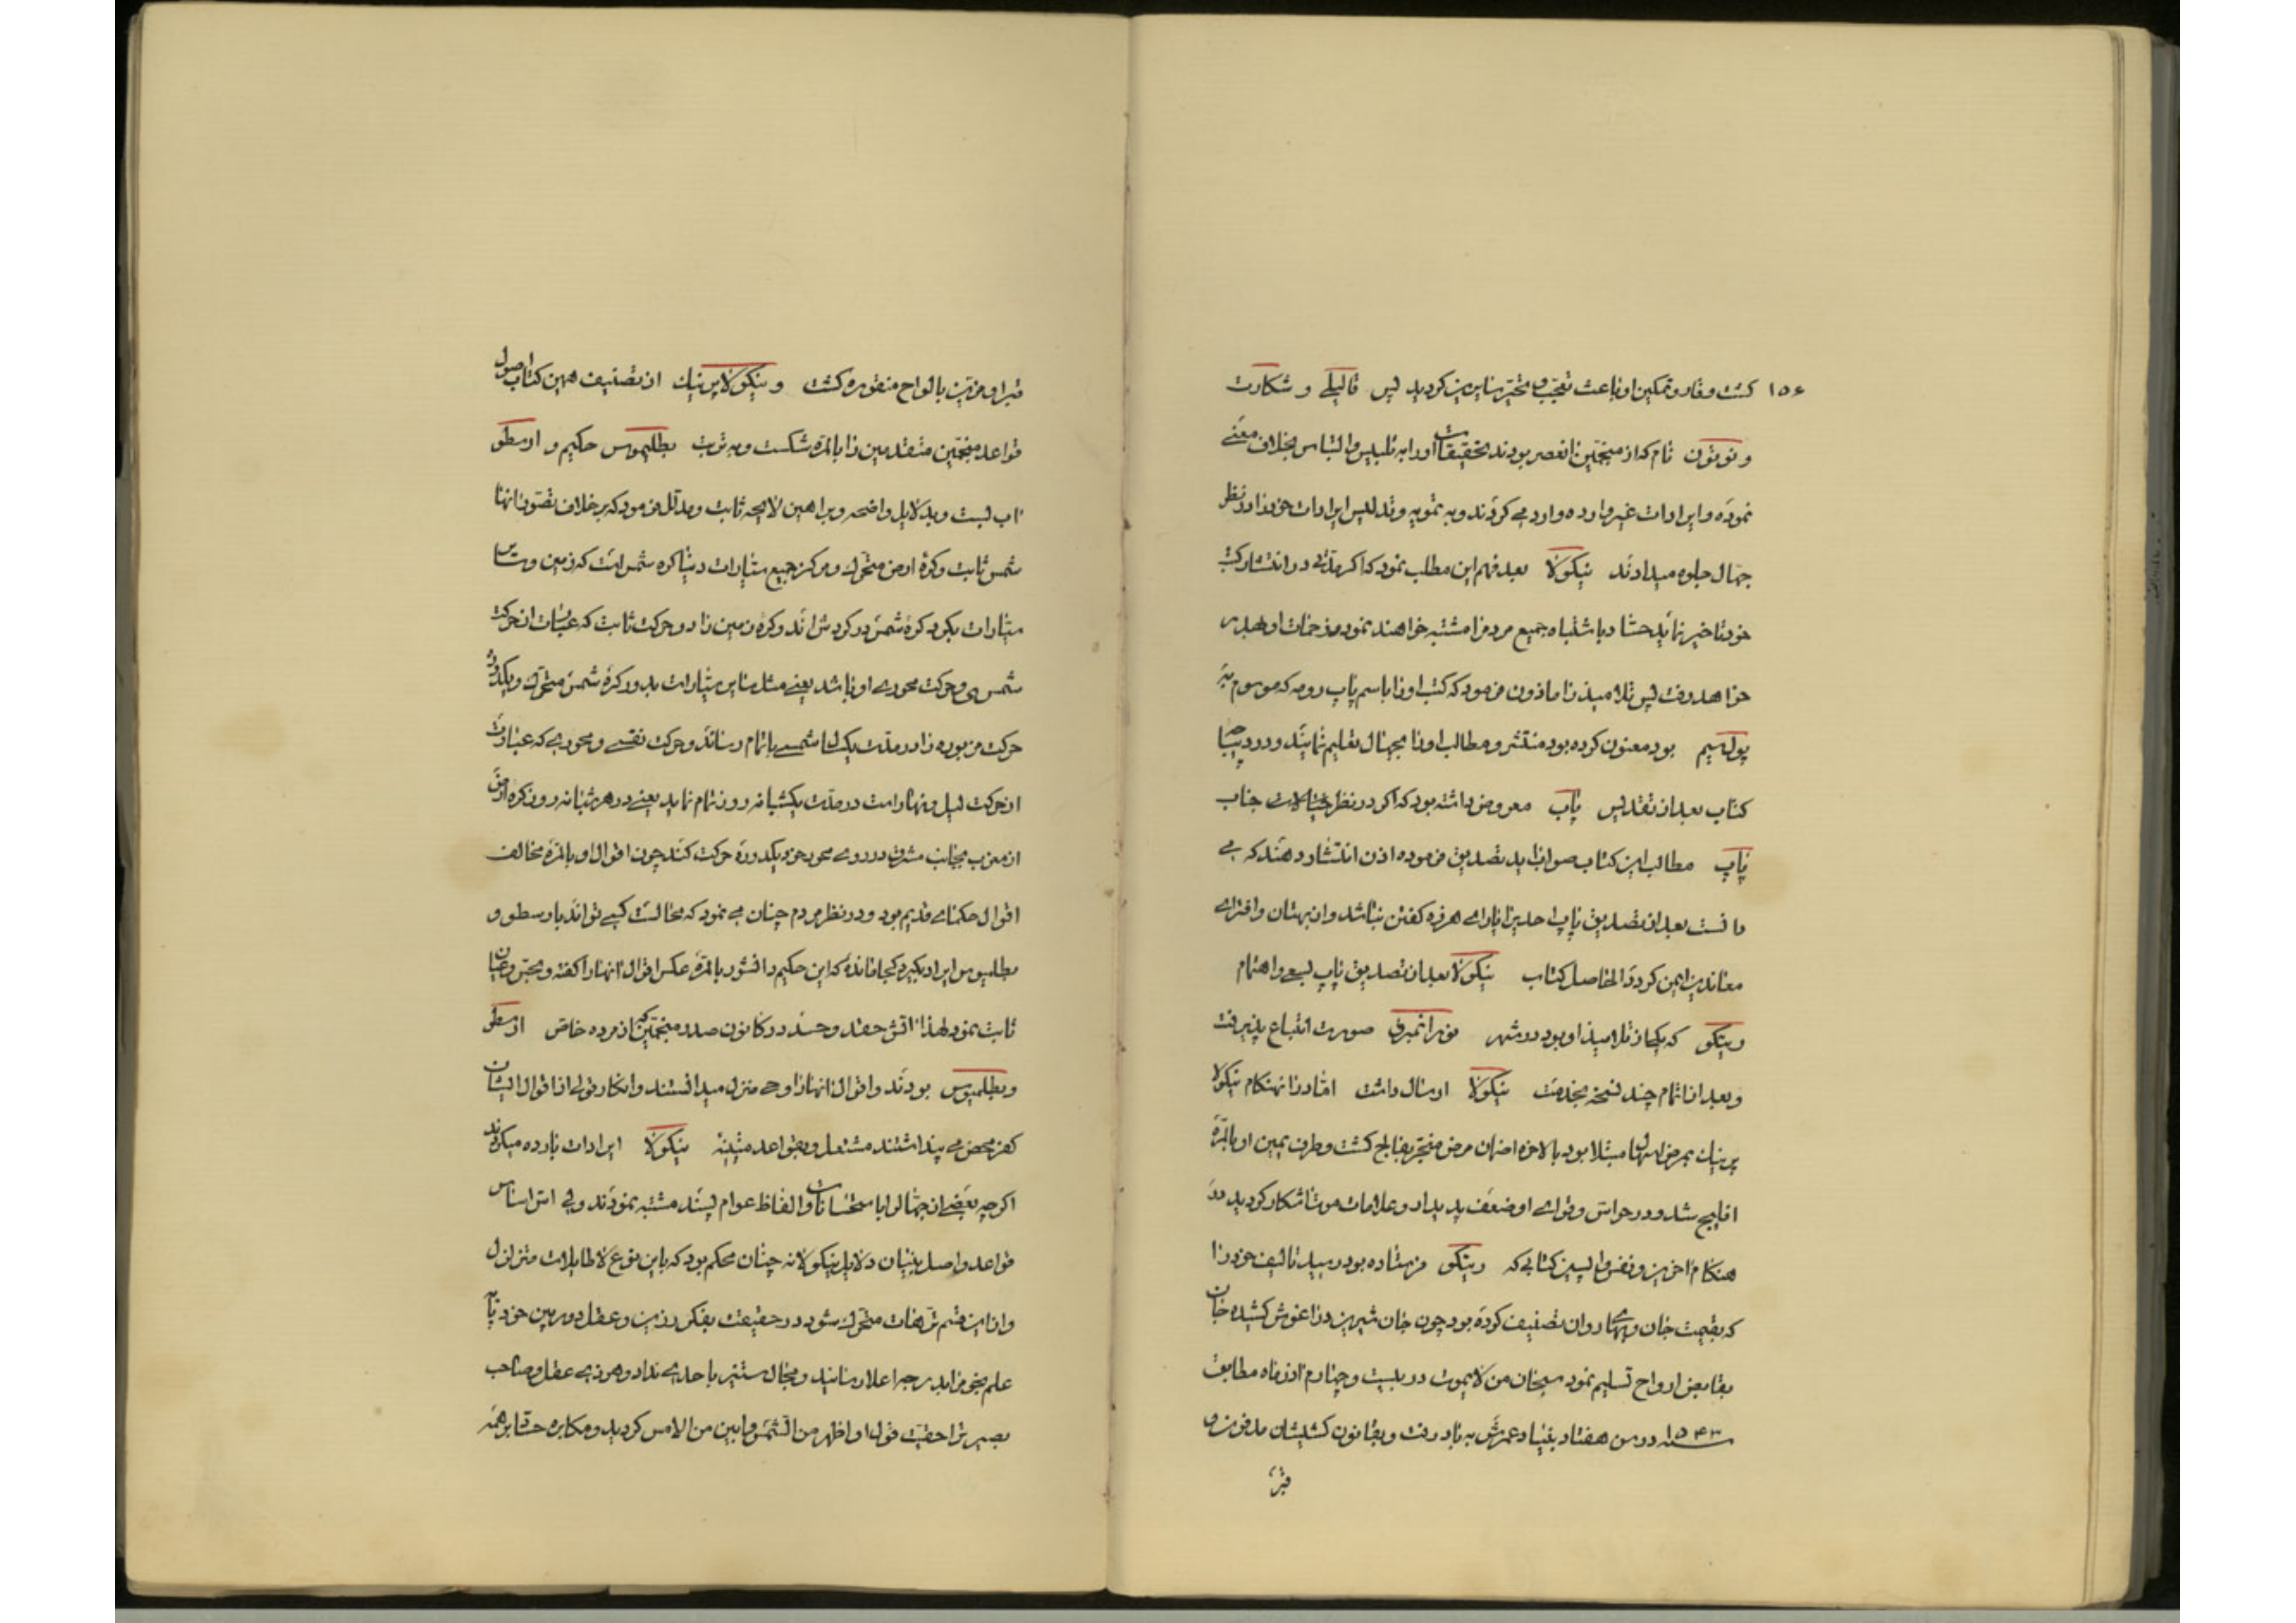 ۱۵۶
کشت وقار و تمکین او باعث تعجب و تحیر سایرین کردید پس قالیله و شکارت
و نوتون نام که از منجمین انعصر بودند تحقیقات اورا به تلبیس والتباس بخلاف معنے
نموده و ایرادات غیر وارده وارد مے کردند و به تمویه و تدلیس ایرادات خود را در نظر
جهال جلوه میدادند نیکولا بعد فهم این مطلب نمود که اکر مدتے در انتشار کتب
خود تاخیر نماید حساد باشتباه جمیع مردم را مشتبه خواهند نمود و زحمات او بهدر
خواهد رفت پس تلامیذ را ماذون فرمود که کتب او را باسم پاپ رومه که موسوم به
پولسیم بود معنون کرده بود منتشر و مطالب او را بجهال تعلیم نمایند و در دیباچه
کتاب بعد از تقدیس پاپ معروض داشته بود که اکر در نظر جناب
پاپ مطالب این کتاب صواب اید تصدیق فرموده اذن انتشار دهند که مے
دانست بعد از تصدیق پاپ احدیرا یارای هرزه کفتن نباشد و از بهتان و افترای
معاندین ایمن کردد الحاصل کتاب نیکولا بعد از تصدیق پاپ بسعے و اهتمام
ریتکو که یکی از تلامیذ او بود در شهر نورانمبرق صورت انطباع پذیرفت
و بعد از اتمام چند نسخه بخدمت نیکولا ارسال داشت اما در انهنکام نیکولا
پرنیك بمرض اسهال مبتلا بود بالاخره ان مرض منجر بفالج کشت و طرف یمین او بالمره
افلیج شد و در حواس و قوای او ضعف پدیدار و علامات موت اشکار کردید در
هنکام اخرین و نفس واپسین کتابی که ریتکو فرستاده بود رسید تالیف خود را
که بقیمت جان و بهای روان تصنیف کرده بود چون جان شیرین در اغوش کشیده جان
بقابض ارواح تسلیم نمود سبحان من لا یموت در بیست و چهارم ماه مطابق
سنه ۱۵۴۳ در سن هفتاد بنیاد عمرش به باد رفت و بقانون کشیشان مدفون و
قبر
قبر او مزین بالواح منقوره کشت و نیکولا پرنیك از تصنیف همین کتاب اصول
قواعد منجمین متقدمین را بالمره شکست و به ترتیب بطلیموس حکیم و ارسطو
اب بست و بدلایل واضحه و براهین لایحه ثابت و مدلل فرمود که بر خلاف تصور انها
شمس ثابت و کره ارض متحرك و مرکز جمیع سیارات دنیا کره شمس است که زمین و سایر
سیارات بکرد کره شمس در کردش اند و کره زمین را دو حرکت ثابت که عبارت از حرکت
شمسی و حرکت محوری او باشد یعنے مثل سایر سیارات بدور کره شمس متحرك و یکدور
حرکت مزبوره را در مدت یکسال شمسے باتمام رساند و حرکت نفسے و محوری که عبارت
از حرکت لیل و نهار است در مدت یکشبانه روز تمام نماید یعنے در هر شبانه روز کره ارض
از مغرب بجانب مشرق در روی محور خود یکدوره حرکت کند چون اقوال او بالمره مخالف
اقوال حکمای قدیم بود و در نظر مردم چنان مے نمود که مخالست کسے تواند بارسطو و
بطلیموس ایراد بکیرد کجا مانده که این حکیم دانشور بالمره عکس اقوال انها را کفته و
ثابت نمود لهذا اتش حقد و حسد در کانون صدور منجمین که از مرده خاص ارسطو
و بطلمیوس بودند و اقوال انها را وحی منزل میدانستند و انکار قولی از اقوال ایشان
کفر محض مے پنداشتند مشتعل و بقواعد متینه نیکولا ایرادات بارده میکردند
اکرچه بعضے از جهال را با سخنان و الفاظ عوام پسند مشتبه نمودند ولی اس اساس
قواعد و اصل بنیان دلایل نیکولا نه چنان محکم بود که باین نوع لاطایلات متزلزل
و از این قسم ترهات متحرك شود در حقیقت بفکر رزین و عقل دوربین خود
علم را بدرجه اعلا رسانید و مجال ستیز باحدی نداد و هر ذی عقل و صاحب
بصیرتی را حقیت قول او اظهر من الشمس و ابین من الامس کردید و مکابره حساد بر همه